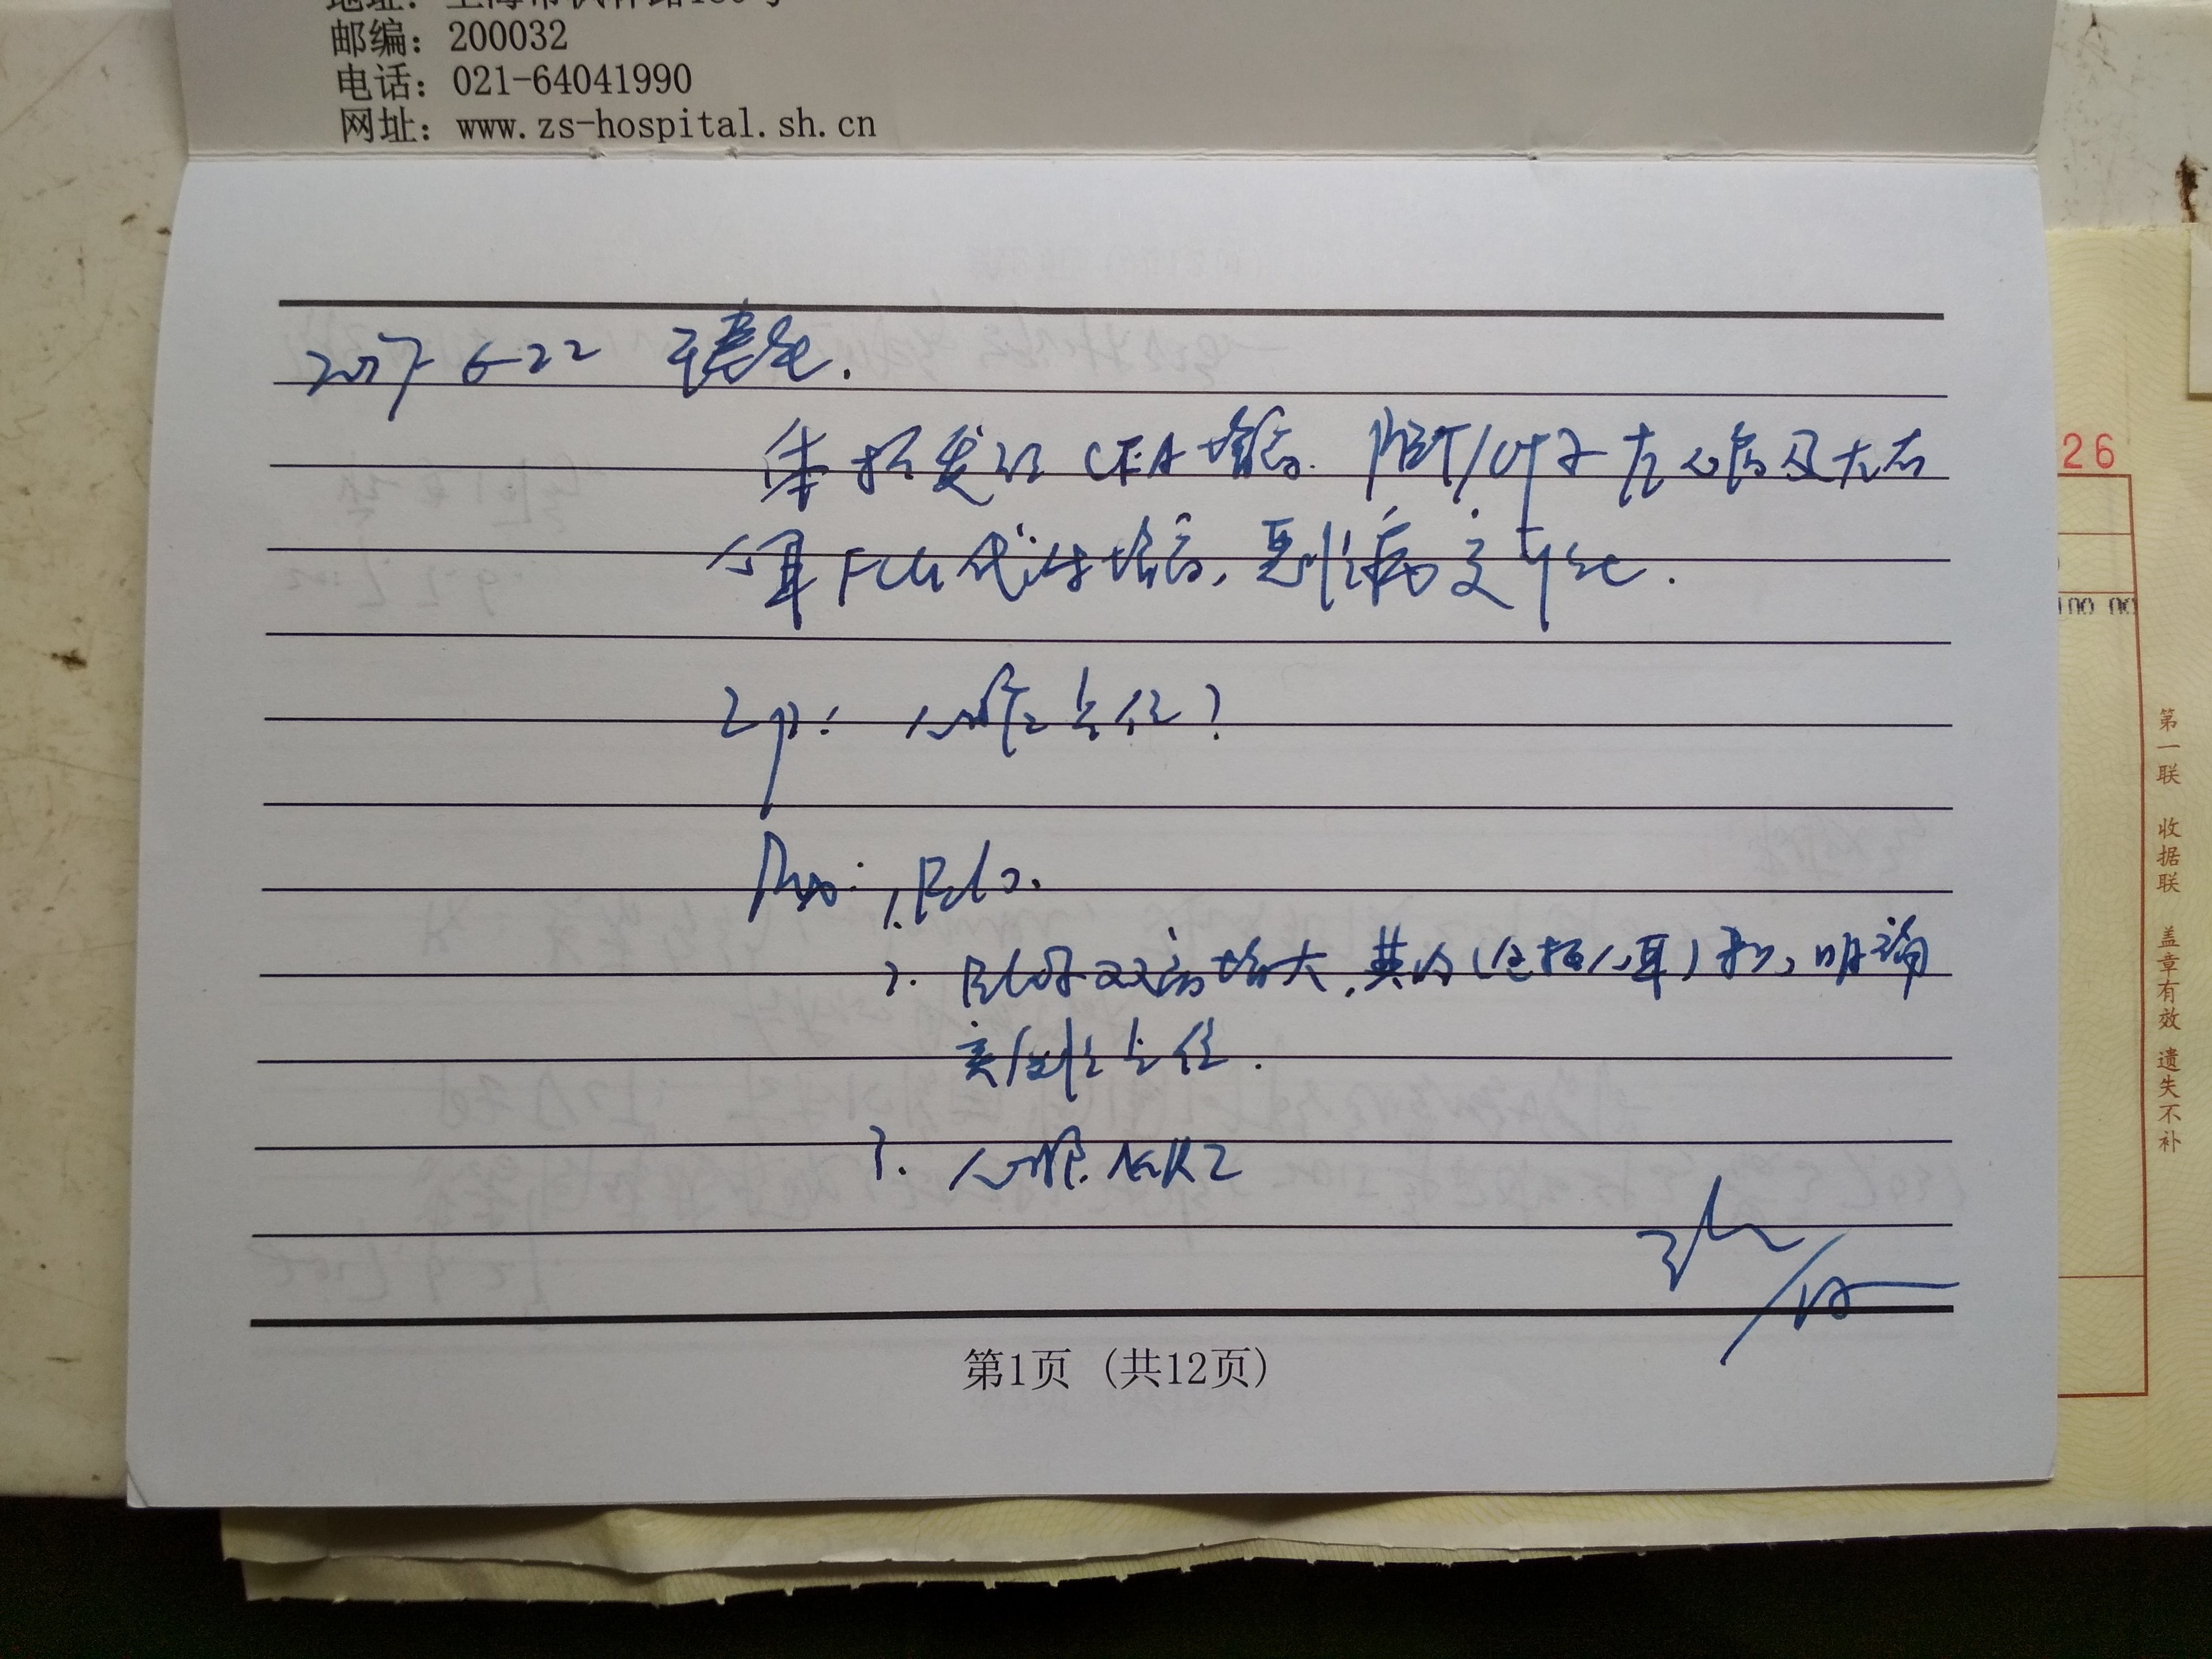 邮编：200032
电话：021-64041990
网址：www.zs-hospital.sh.cn
26
2017 6-22
体检发现 CEA 增高. PET/CT示 左心房及左右
心耳 FDG 代谢增高, 恶性病变
Imp: 心脏占位?
Rp: 1.
2. 示双房增大,其内(包括心耳)未见明确
实质性占位.
3. 心脏 MRI
第1页（共12页）
100 00
第一联 收据联 盖章有效 遗失不补